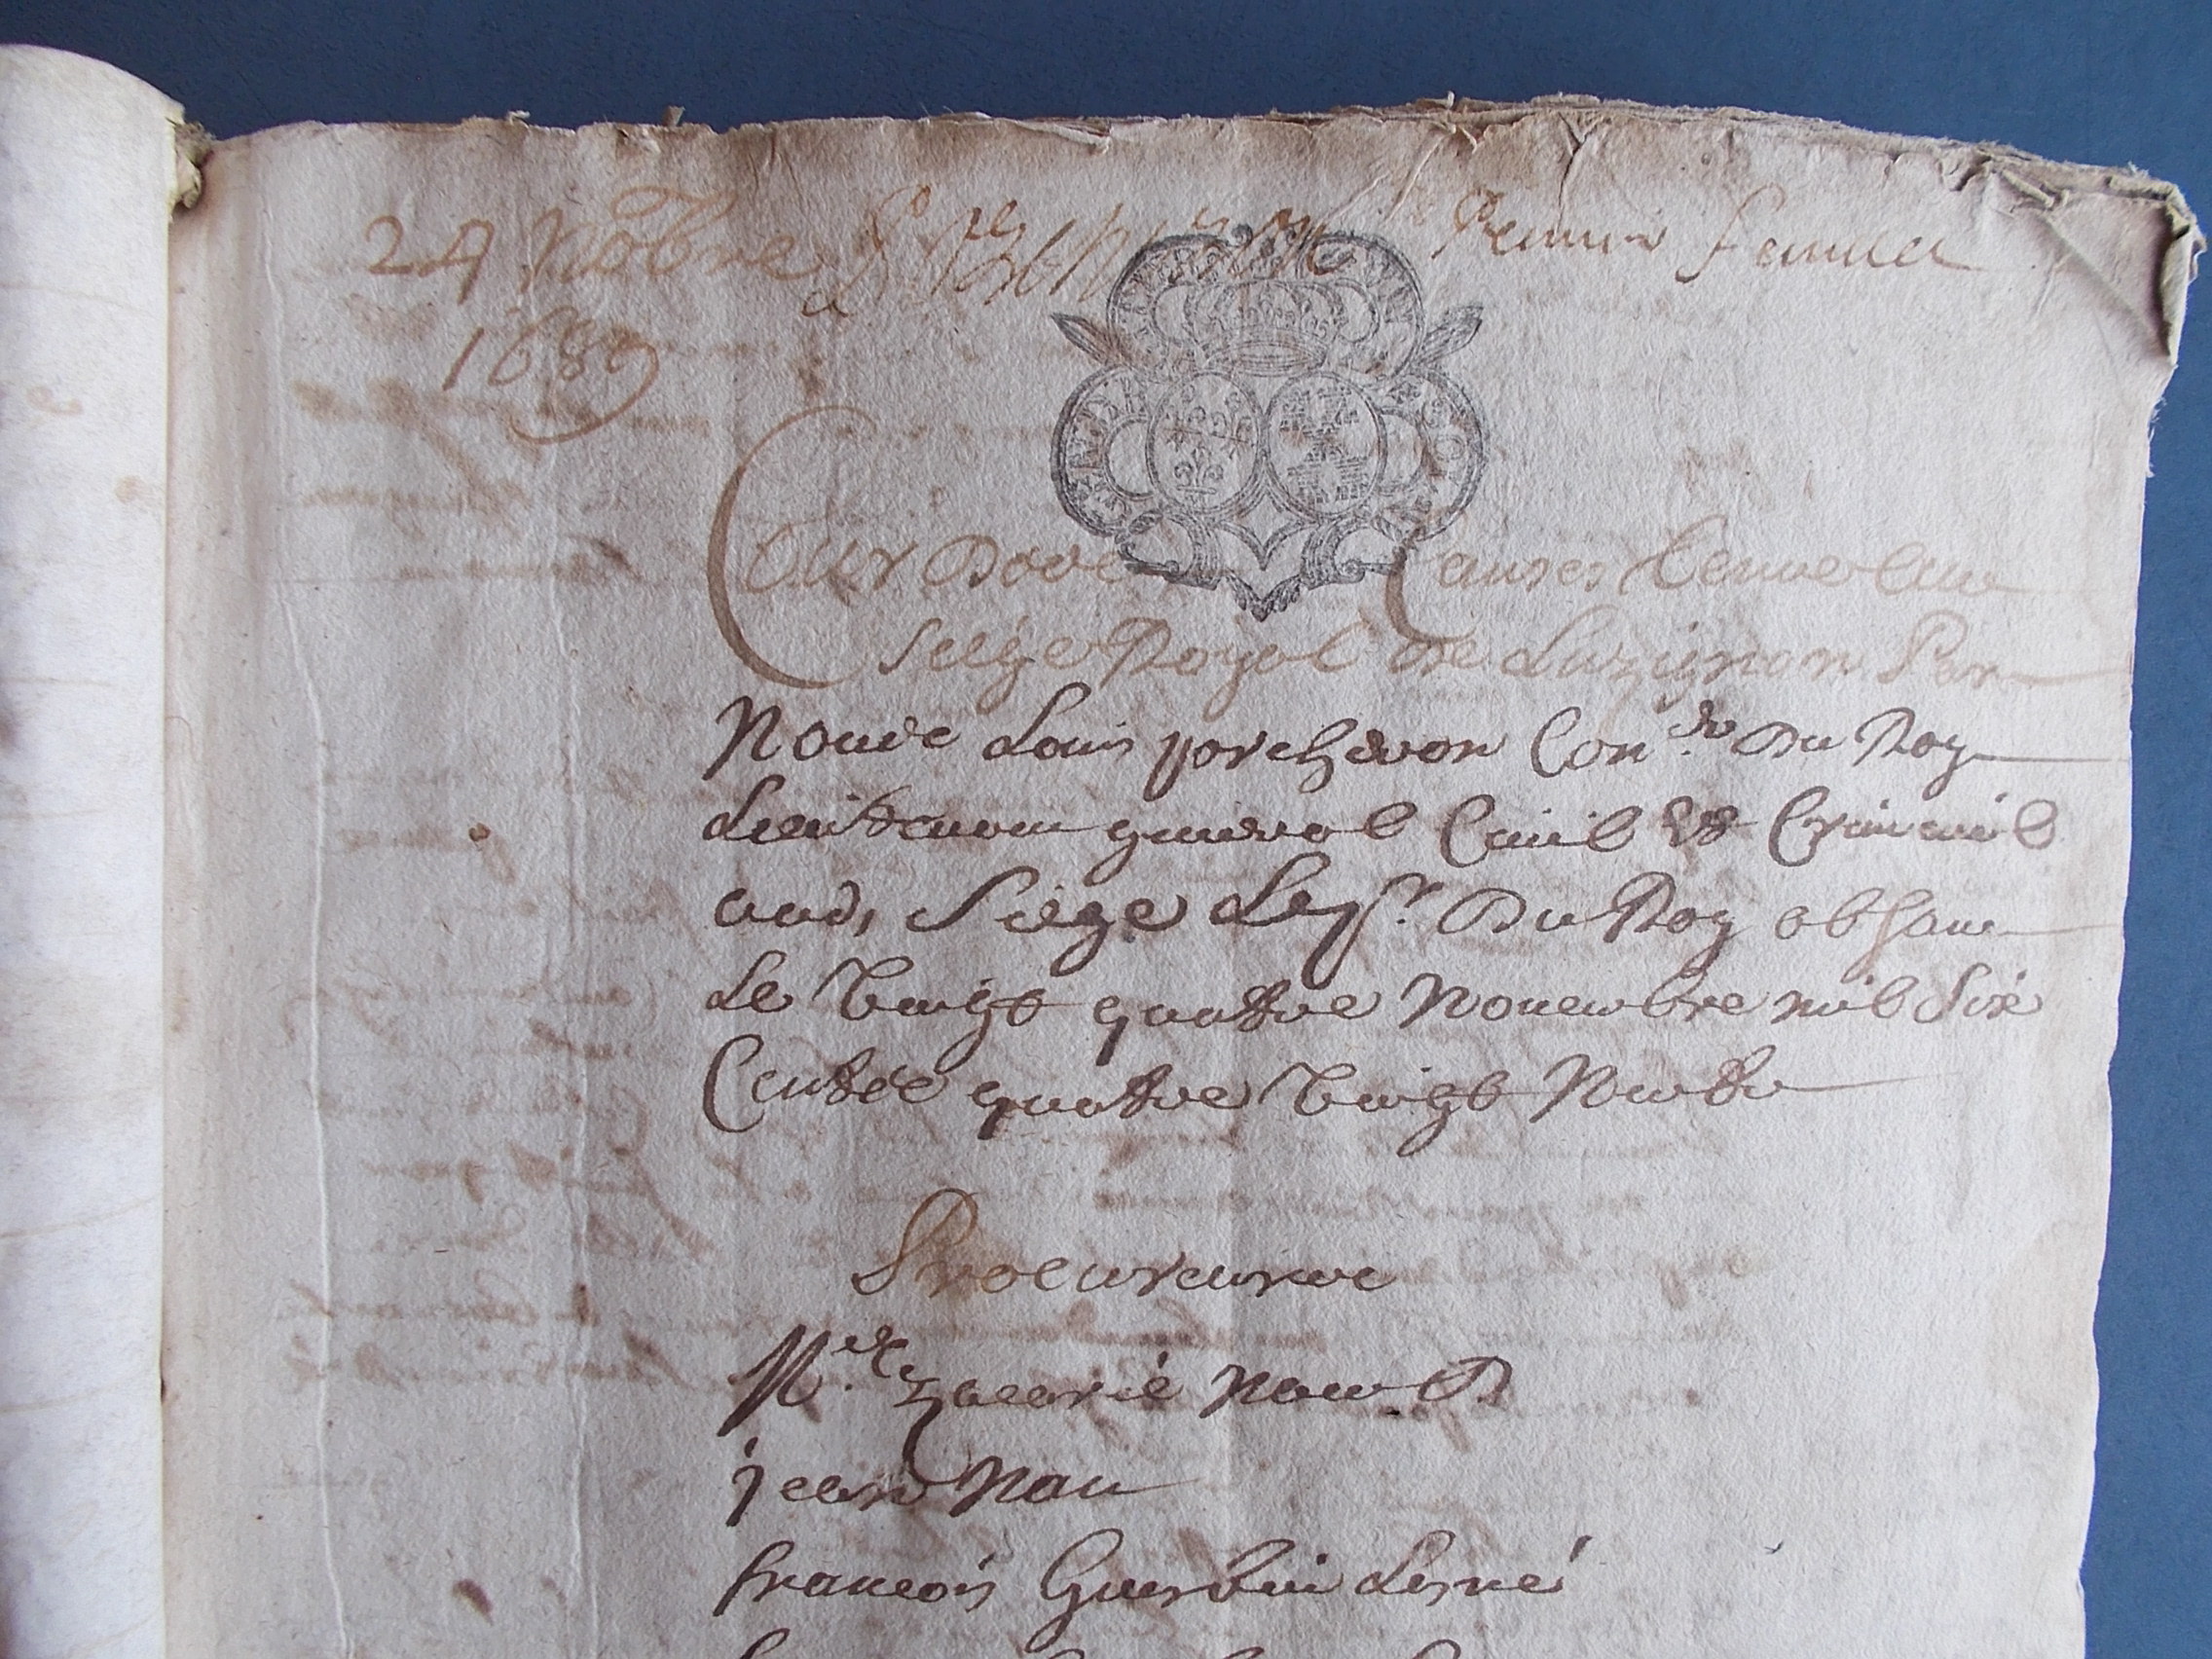 24 Nobre
1689
Premier feuillet
Cour Causes tenue au
siége Royal de Luzignan Par
Nous Louis porcheron Con.er Du Roy
Lieutenant general Ciuil Et Criminel
aud. Siege Le pr. Du Roy absant
Le Vingt quattre Nouembre mil Six
Centz quattre Vingt Neuf
Procureurs
M.es Zacarie Nau
jean Nau
francois Guerin Lesné